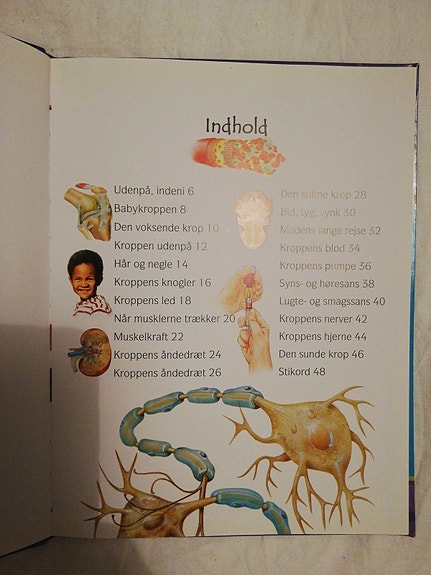 Indhold
Udenpå, indeni 6
Babykroppen 8
Den voksende krop 10
Kroppen udenpå 12
Hår og negle 14
Kroppens knogler 16
Kroppens led 18
Når musklerne trækker 20
Muskelkraft 22
Kroppens åndedræt 24
Kroppens åndedræt 26
Den sultne krop 28
Bid, tyg, synk 30
Madens lange rejse 32
Kroppens blod 34
Kroppens pumpe 36
Syns- og høresans 38
Lugte- og smagssans 40
Kroppens nerver 42
Kroppens hjerne 44
Den sunde krop 46
Stikord 48